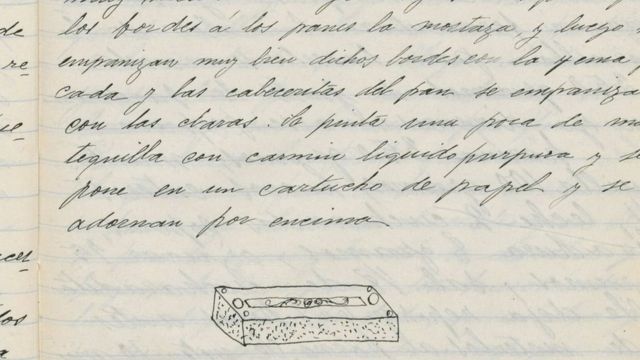 los bordes á los panes la mostaza, y luego
empanizan muy bien dichos bordes con la yema
cada y las cabeceritas del pan se empaniza
con las claras. Se pinta una poca de ma
tequilla con carmin liquido purpura y se
pone en un cartucho de papel y se
adornan por encima